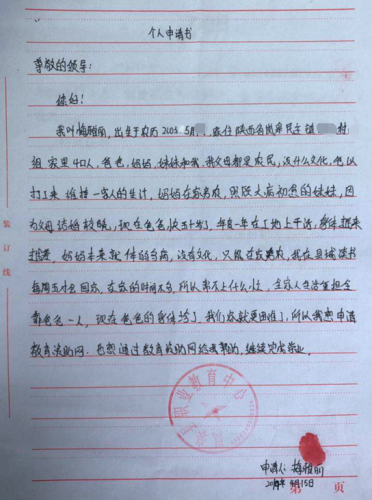 个人申请书
尊敬的领导：
您好！
我叫梅雅丽，出生于农历2003 5月 家住陕西省岚皋民主镇 村
组 家里4口人，爸爸，妈妈，妹妹和我，我父母都是农民，没什么文化，爸以
打工来 维持一家人的生计，妈妈在家务农，照顾大病初愈的妹妹，因
为父母结婚较晚，现在爸爸快五十岁了，年复一年在工地上干活，身体越来
越差，妈妈本来就体弱多病，没有文化，只能在家务农，我在县城读书
每周五才会回家，在家的时间不多，所以帮不上什么忙，全家人生活重担全
靠爸爸一人，现在爸爸的身体垮了，我们家就更困难了，所以我想申请
教育 的网 希望通过教育 的网给我帮助，继续完成学业。
职业教育中心
申请人：梅雅丽
4月15日
第 页
装订线